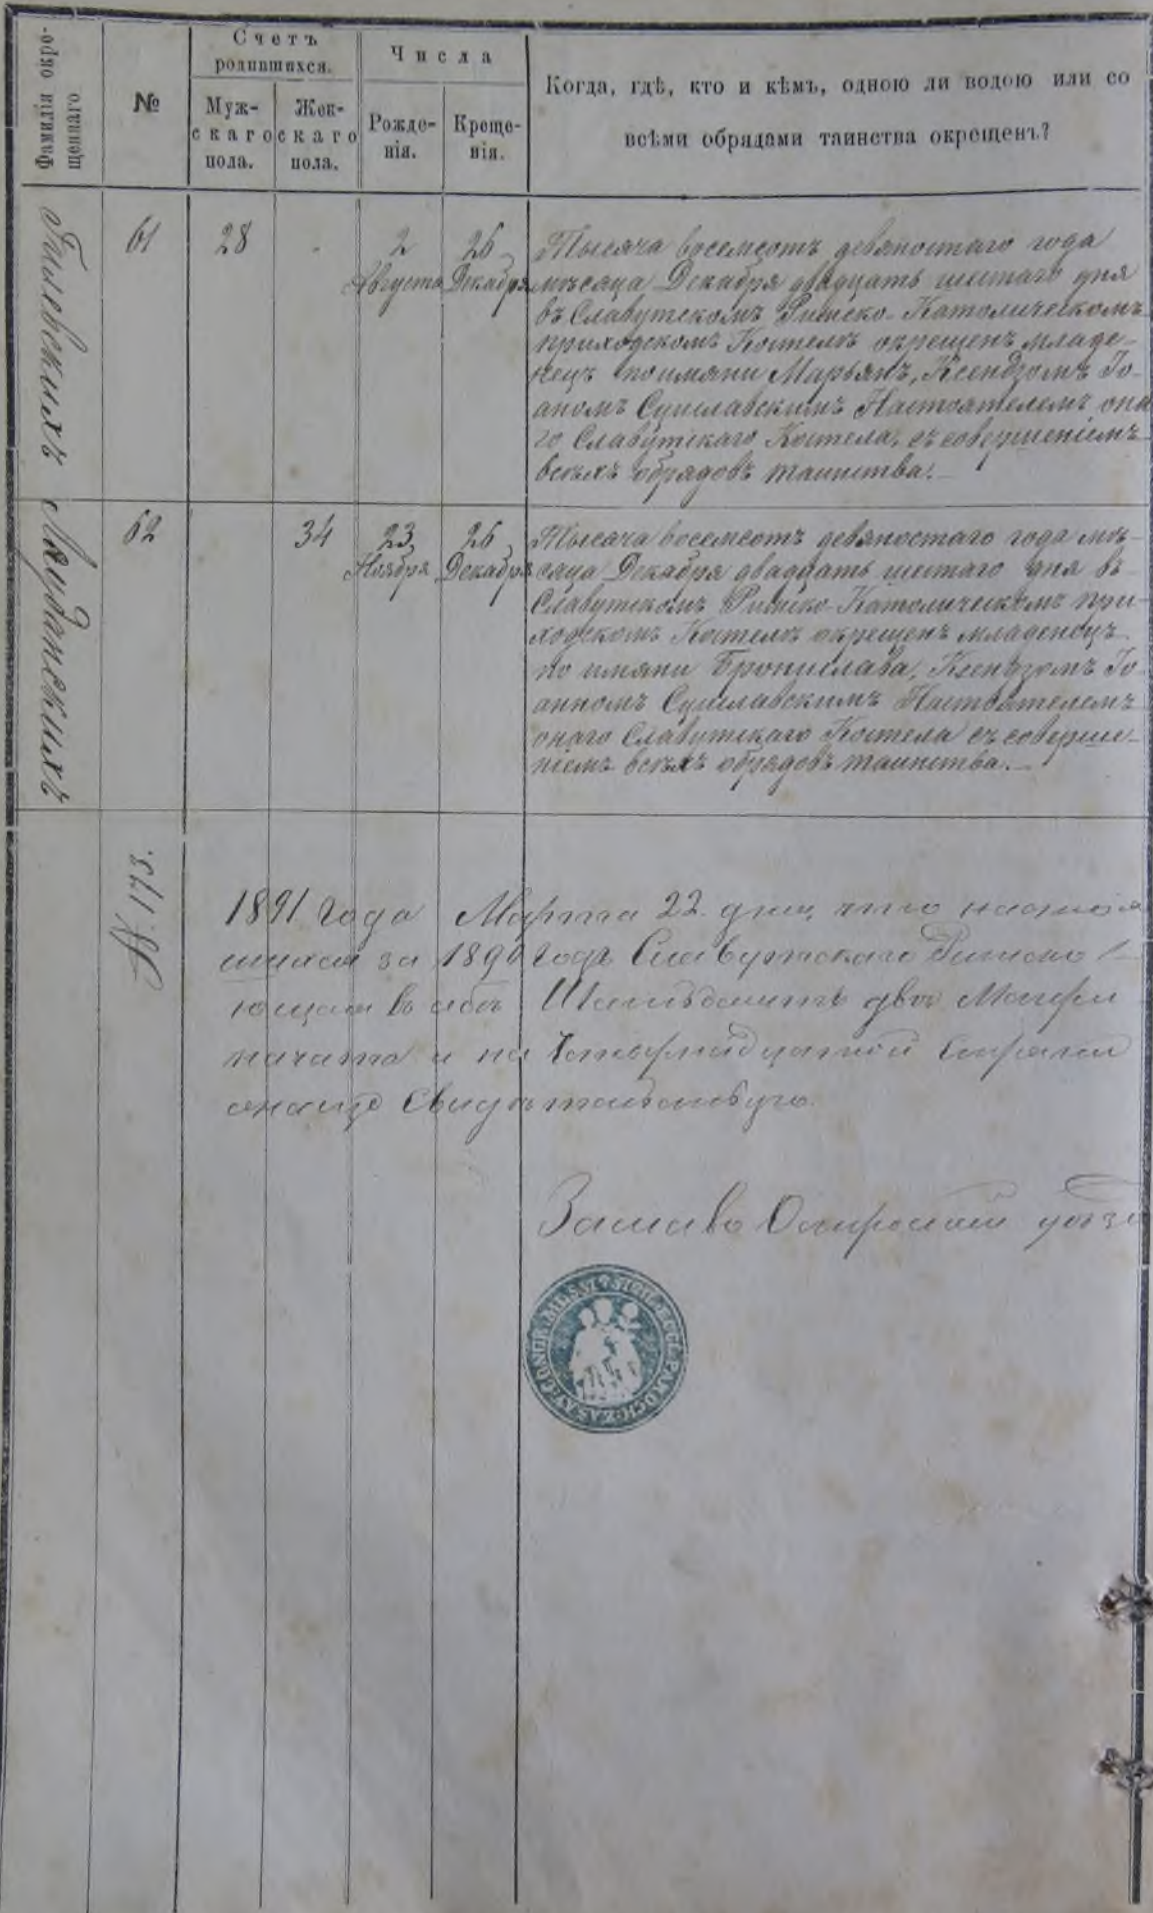 Фамилія окре-
щеннаго
№
Счетъ
родившихся.
Муж-
скаго
пола.
Жен-
скаго
пола.
Числа
Рожде-
нія.
Креще-
нія.
Когда, гдѣ, кто и кѣмъ, одною ли водою или со
всѣми обрядами таинства окрещенъ?
61
28
-
2
Августа
26
Декабря
Тысяча восемсотъ девяностаго года
мѣсяца Декабря двадцать шестаго дня
въ Славутскомъ Римско-Католическомъ
приходскомъ Костелѣ окрещенъ младе-
нецъ по имяни Марьянъ, Ксендзомъ Іо-
аномъ Сушлавскимъ Настоятелемъ она
го Славутскаго Костела, съ совершеніемъ
всѣхъ обрядовъ таинства.-
62
34
23
Ноября
26
Декабря
Тысяча восемсотъ девяностаго года мѣ-
сяца Декабря двадцать шестаго дня въ
Славутскомъ Римско-Католическомъ при-
ходскомъ Костелѣ окрещенъ младенецъ
по имяни Бронислава, Ксендзомъ Іо-
анномъ Сушлавскимъ Настоятелемъ
онаго Славутскаго Костела съ соверше-
ніемъ всѣхъ обрядовъ таинства.-
№ 173.
1891 года Марта 22 дня, что настоя
за 1890 года Славутскаго Римско
въ себѣ двѣ
начата и на Четырнадцатой
свидѣтельствую.
Заславо Острогскій уѣзд
SIGIL. ECCL. PAROCH. ZASLAV.